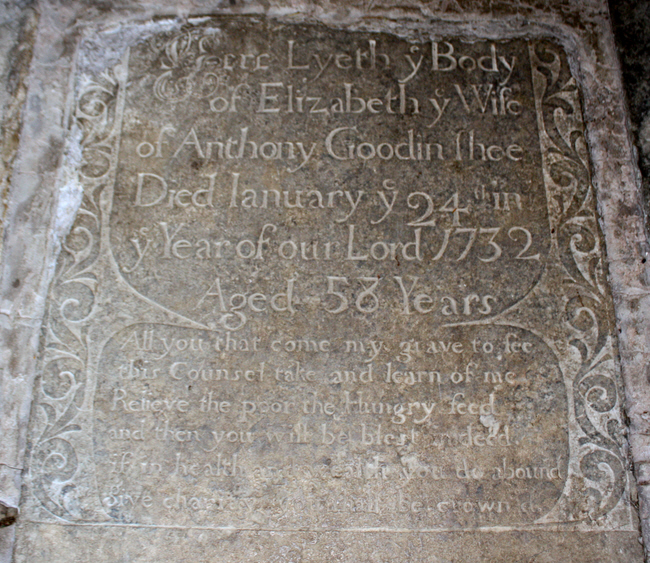 Here Lyeth ẏ Body
of Elizabeth ẏ Wife
of Anthony Goodin shee
Died Ianuary ẏᵉ 24th in
ẏ Year of our Lord 1732
Aged 58 Years
All you that come my grave to see
this Counsel take and learn of me
Relieve the poor the Hungry feed
and then you will be blest indeed
if in health you do abound
Give be crown'd